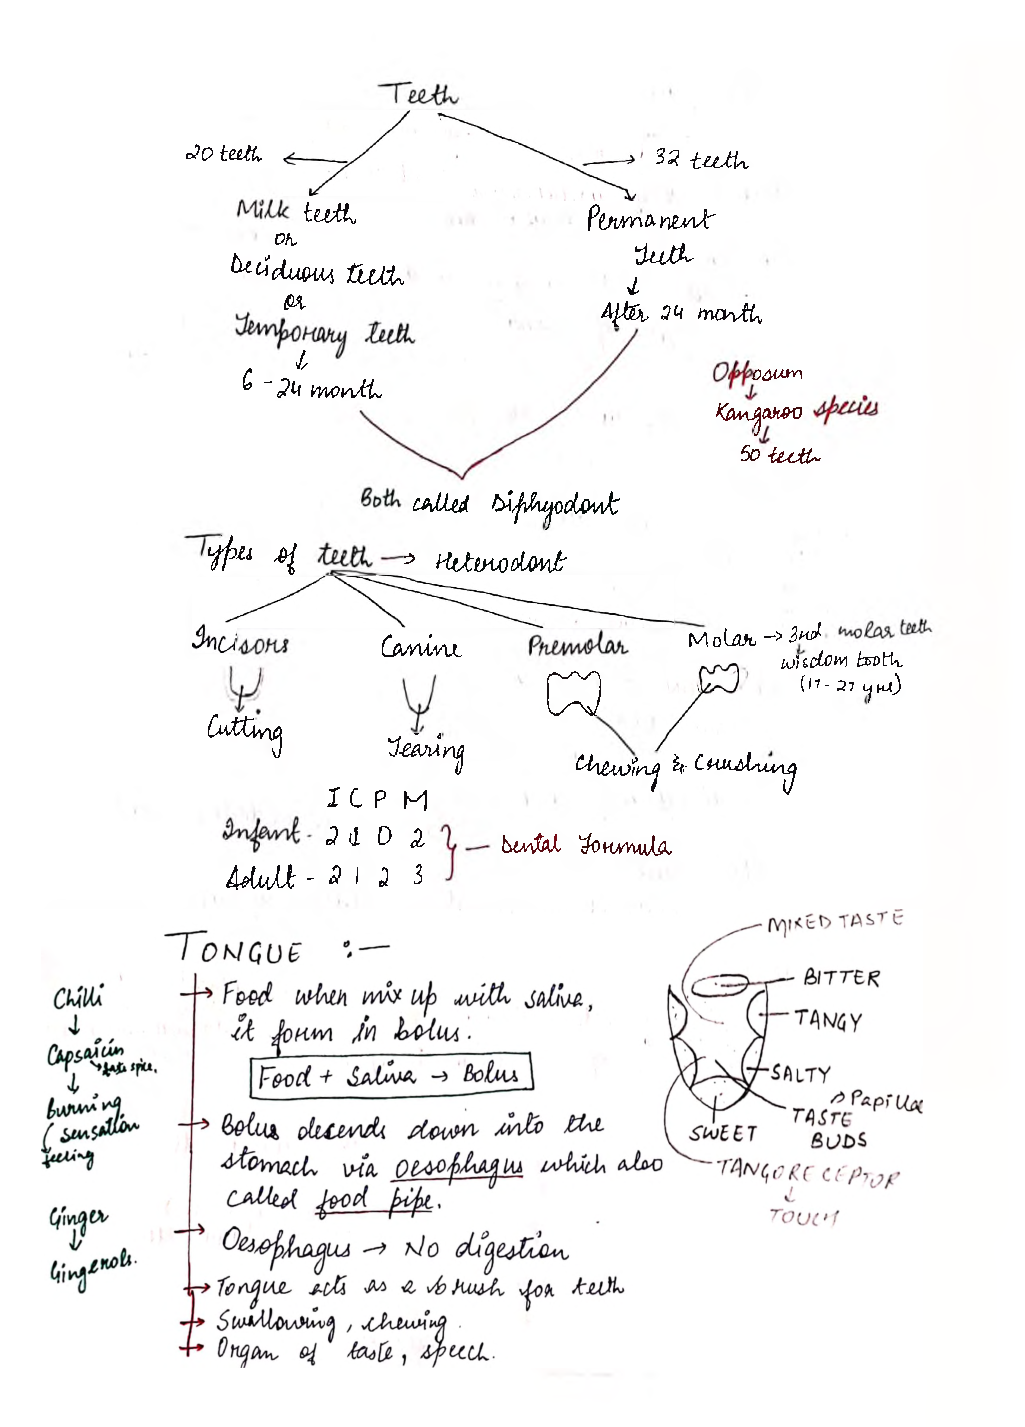 Teeth
20 teeth
32 teeth
Milk teeth
or
Deciduous teeth
or
Temporary teeth
6 - 24 month
Permanent
Teeth
After 24 month
Opposum
Kangaroo species
50 teeth
Both called Diphyodont
Types of teeth → Heterodont
Incisors
Canine
Premolar
Molar → 3rd molar teeth
wisdom tooth
(17-27 yrs)
Cutting
Tearing
Chewing & Crushing
I C P M
Infant - 2 1 0 2
Adult - 2 1 2 3
Dental Formula
TONGUE :-
Food when mix up with saliva,
it form in bolus.
Food + Saliva → Bolus
Bolus decends down into the
stomach via oesophagus which also
called food pipe.
Oesophagus → No digestion
Tongue acts as a brush for teeth
Swallowing, chewing.
Organ of taste, speech.
Chilli
Capsaicin
Burning
sensation
feeling
Ginger
Gingerols.
MIXED TASTE
BITTER
TANGY
SALTY
Papillae
TASTE
BUDS
SWEET
TANGORECEPTOR
TOUCH